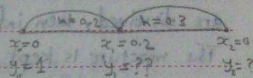 h=0.2 h=0.3
x₀=0 x₁=0.2 x₂=0
y₀=1 y₁=?? y₂=?